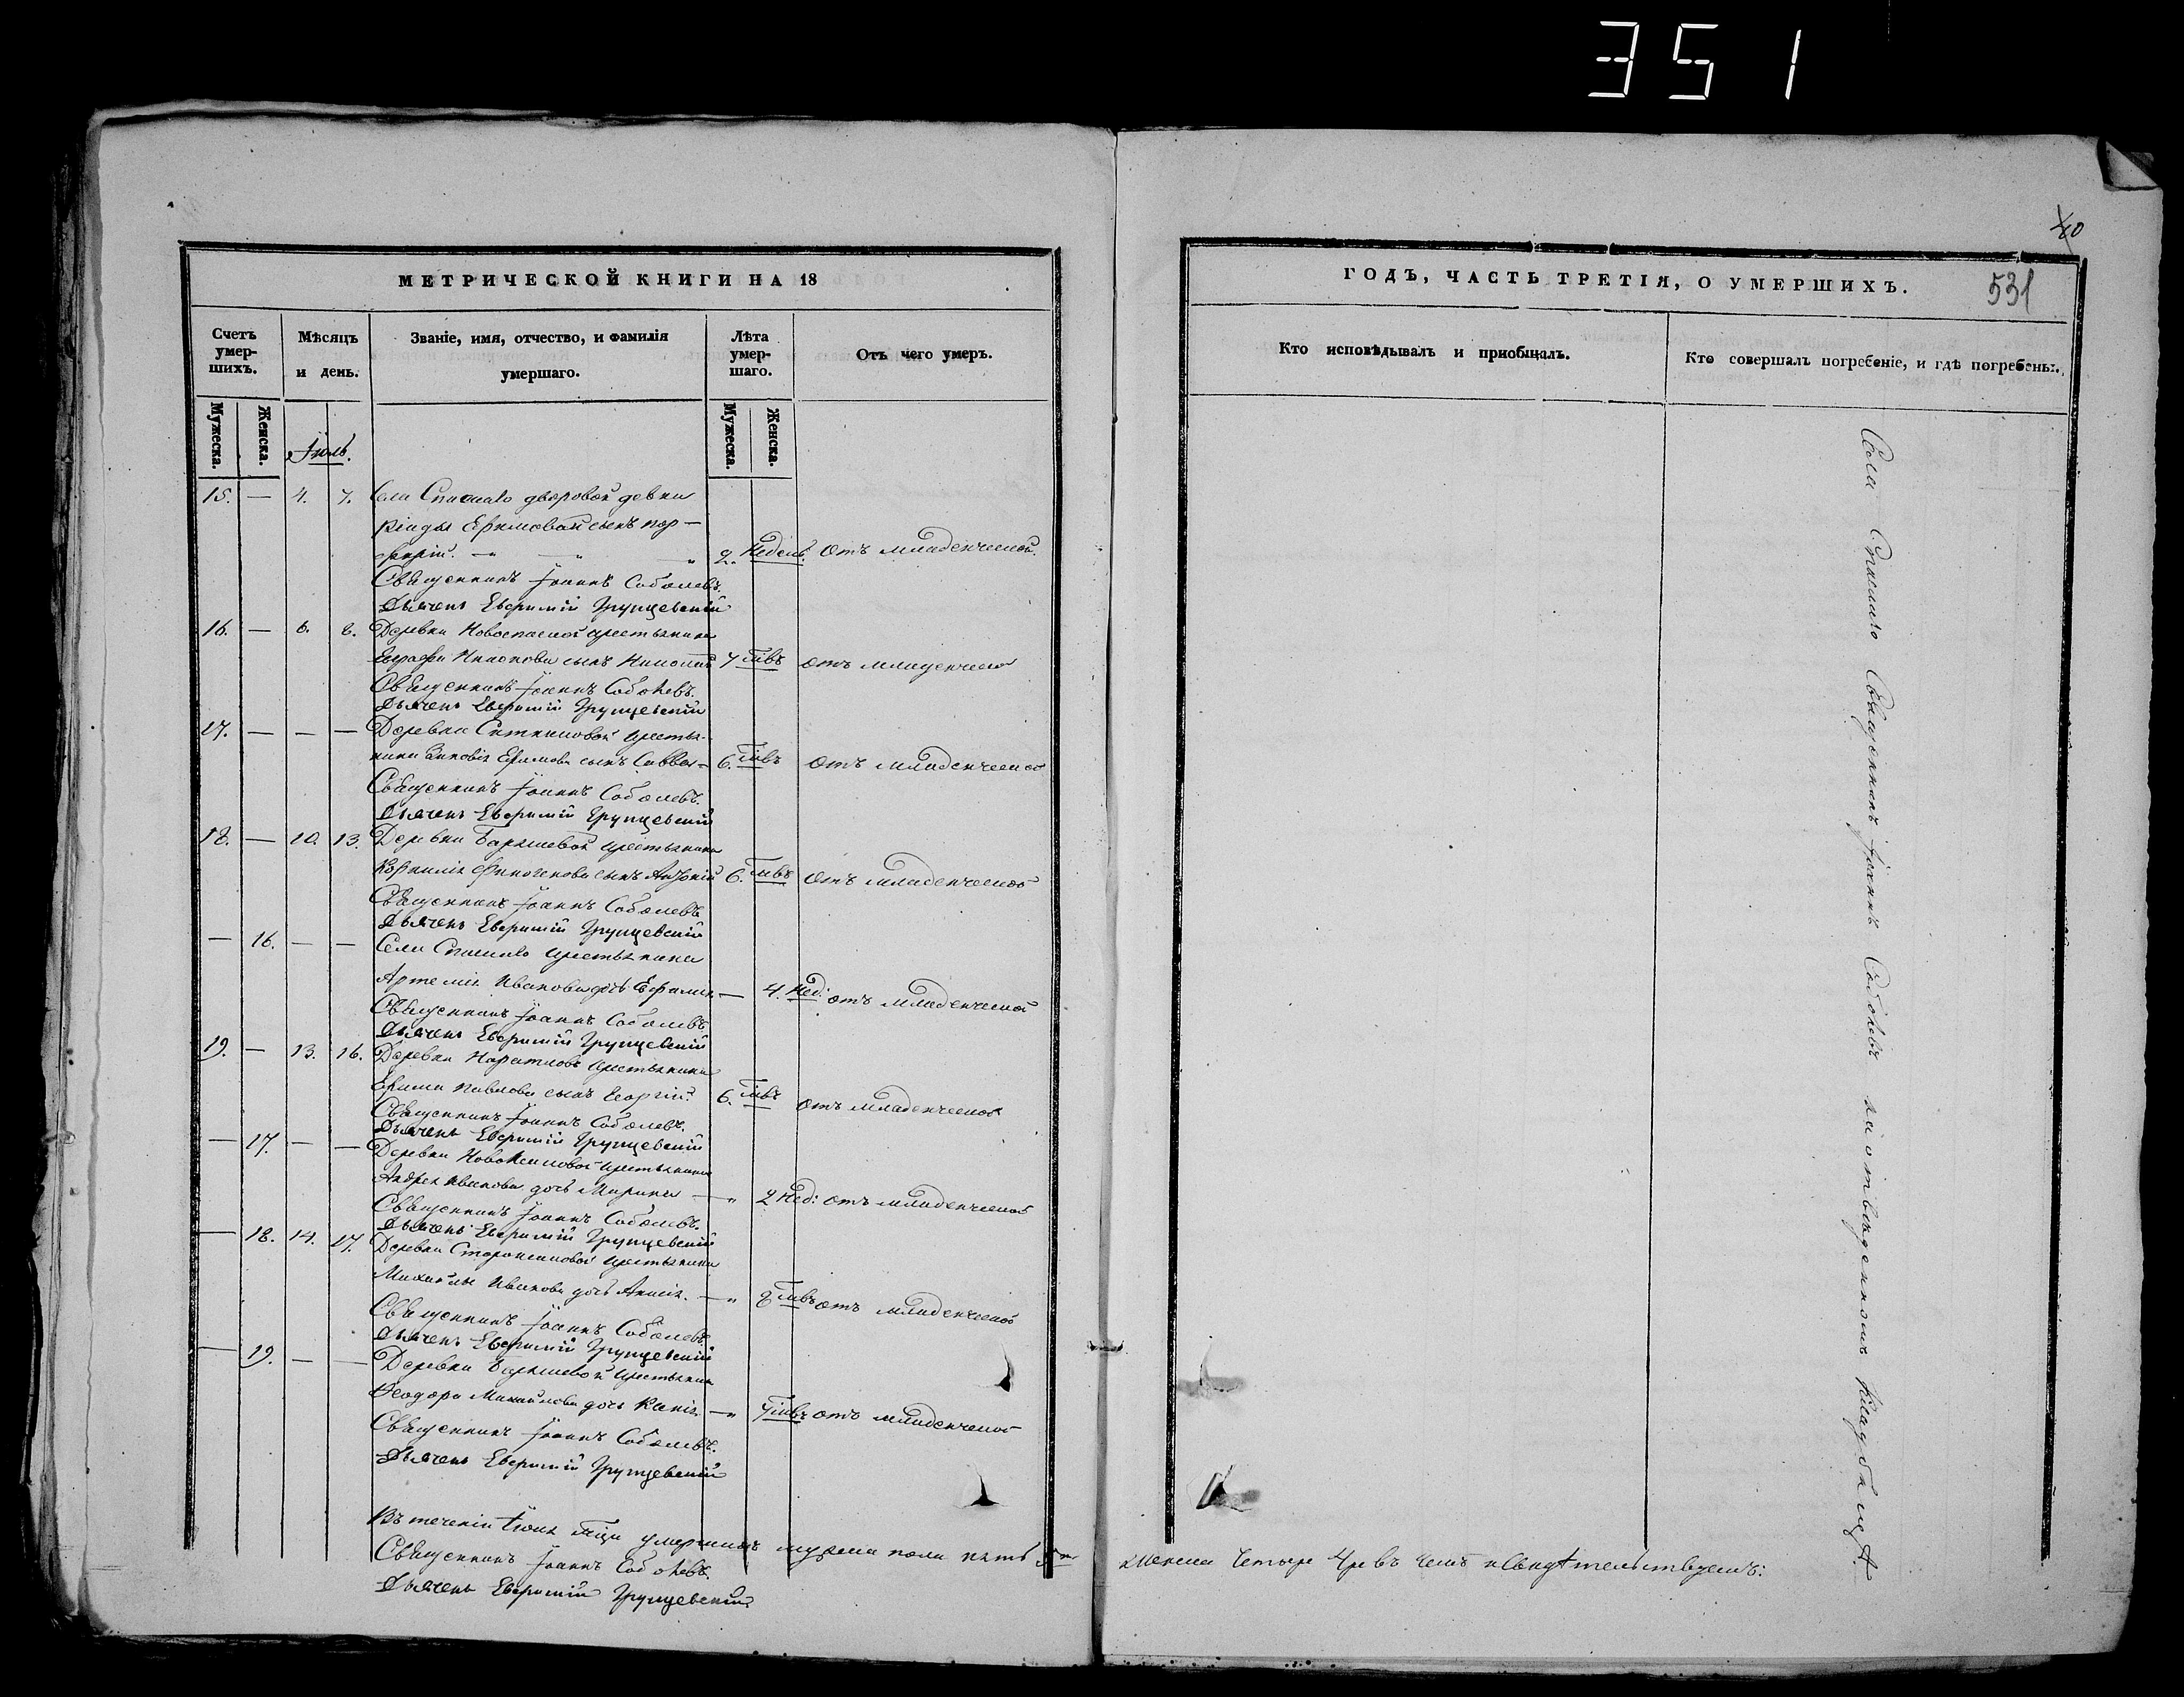 351
МЕТРИЧЕСКОЙ КНИГИ НА 18
Счетъ умер-шихъ.
Мѣсяцъ и день.
Званіе, имя, отчество, и фамилія умершаго.
Лѣта умер-шаго.
Отъ чего умеръ.
Мужеска.
Женска.
Мужеска.
Женска.
Іюль.
15. — 4. 7. Села Спаскаго дворовой девки
Ефимовой сынъ Пор-
фирій. — " — " 2. Недель. Отъ младенческой.
Священникъ Іоаннъ Соболевъ.
Дьячекъ Евфимій Грунцевскій
16. — 6. 8. Деревни Новоспаской крестьянина
сынъ Николай 7 мцвъ отъ младенческой
Священникъ Іоаннъ Соболевъ.
Дьячекъ Евфимій Грунцевскій
17. — — — Деревни крестья-
нина Зиновія Ефимова сынъ Савва — 6. мцвъ отъ младенческой
Священникъ Іоаннъ Соболевъ.
Дьячекъ Евфимій Грунцевскій
18. — 10. 13. Деревни Барышевой крестьянина
Корнилія Финогенова сынъ 6. мцвъ Отъ младенческой
Священникъ Іоаннъ Соболевъ
Дьячекъ Евфимій Грунцевскій
— 16. — — Села Спаскаго крестьянина
Артемія Иванова дочь — 4. Нед: отъ младенческой
Священникъ Іоаннъ Соболевъ
Дьячекъ Евфимій Грунцевскій
19. — 13. 16. Деревни крестьянина
Ефима Павлова сынъ Георгій. 6. мцвъ отъ младенческой
Священникъ Іоаннъ Соболевъ.
Дьячекъ Евфимій Грунцевскій
— 17. — — Деревни крестьянина
Андрея Иванова дочь Марина — " 2 Нед: отъ младенческой
Священникъ Іоаннъ Соболевъ.
Дьячекъ Евфимій Грунцевскій
— 18. 14. 17. Деревни крестьянина
Михайлы Иванова дочь — " 8 мцвъ отъ младенческой
Священникъ Іоаннъ Соболевъ.
Дьячекъ Евфимій Грунцевскій
— 19. — — Деревни Барышевой крестьянина
Феодора Михайлова дочь — " 7 мцвъ отъ младенческой
Священникъ Іоаннъ Соболевъ.
Дьячекъ Евфимій Грунцевскій
Въ теченіи мцѣ умершихъ мужеска пола пять 5
Священникъ Іоаннъ Соболевъ
Дьячекъ Евфимій Грунцевскій.
40
ГОДЪ, ЧАСТЬ ТРЕТІЯ, О УМЕРШИХЪ.
531
Кто исповѣдывалъ и приобщалъ.
Кто совершалъ погребеніе, и гдѣ погребены.
Села Спаскаго Священникъ Іоаннъ Соболевъ на отведенномъ кладбищѣ.
женска четыре 4 въ чемъ и свидѣтельствуемъ: